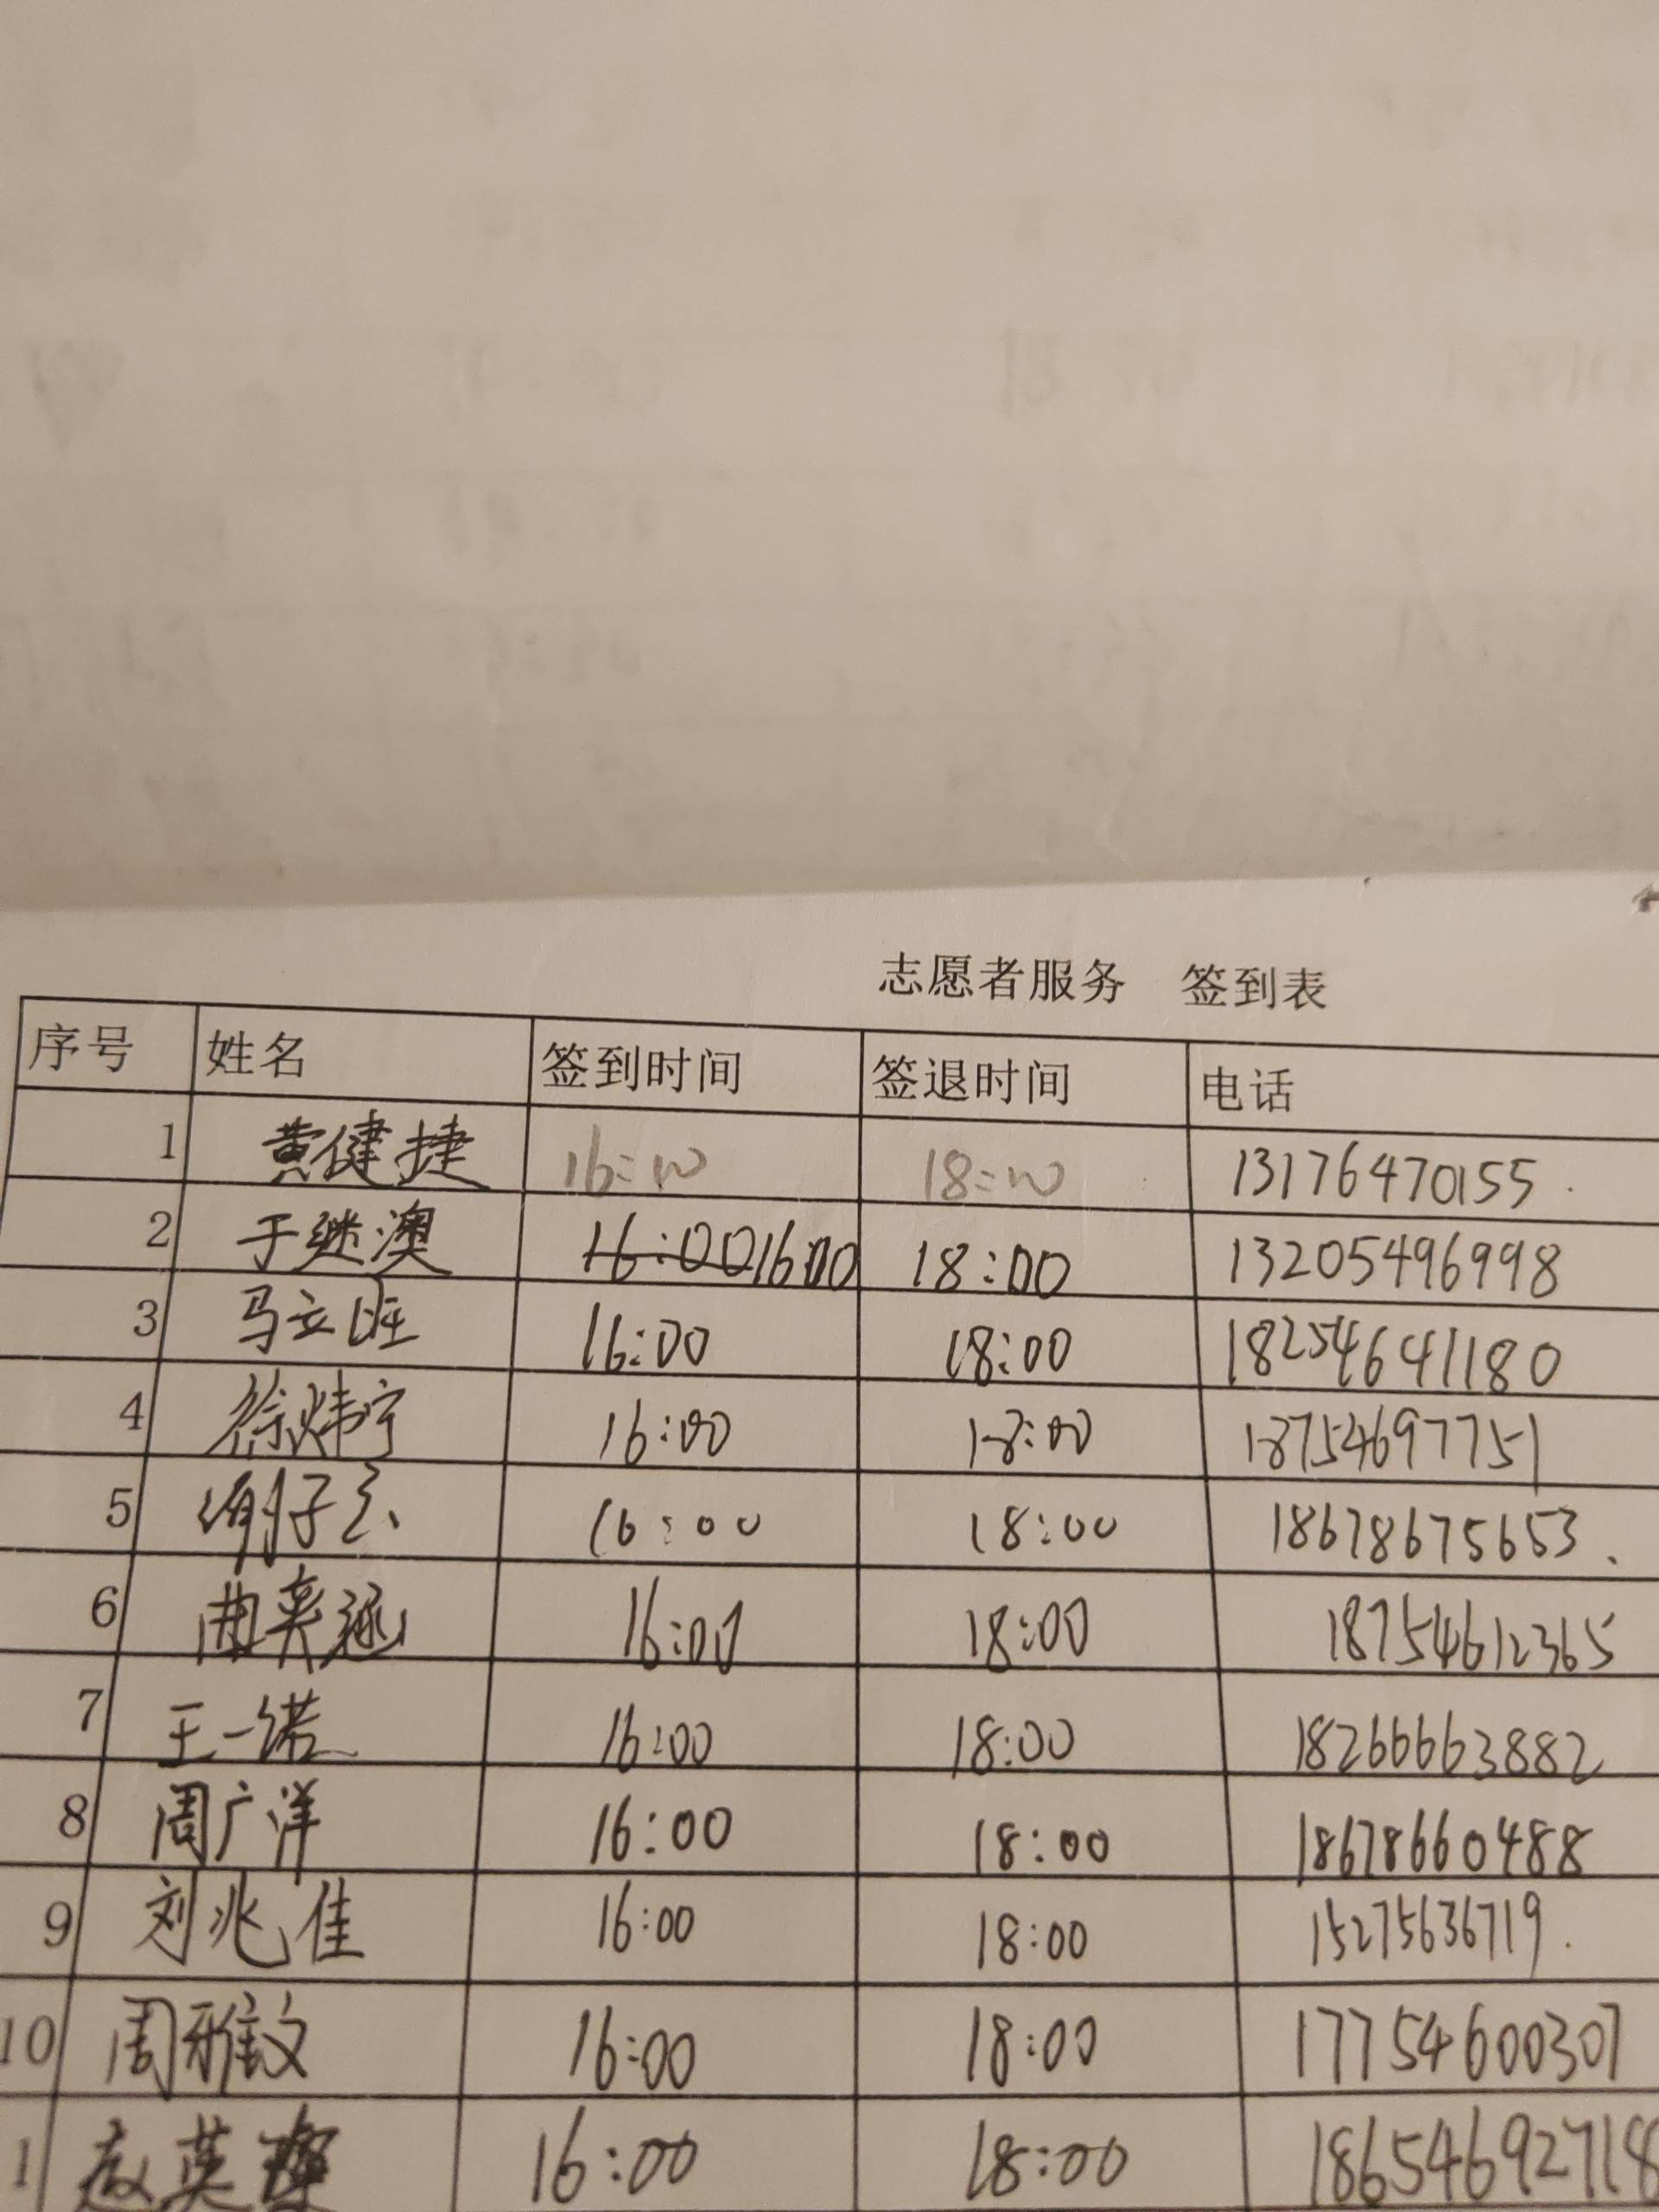 志愿者服务 签到表
序号 姓名 签到时间 签退时间 电话
1 黄健捷 16:00 18:00 13176470155
2 于继澳 16:00 16:00 18:00 13205496998
3 马立旺 16:00 18:00 18254641180
4 徐炜宁 16:00 18:00 18754697751
5 16:00 18:00 18678675653
6 曲奕涵 16:00 18:00 18754612365
7 王一诺 16:00 18:00 18266663882
8 周广洋 16:00 18:00 18678660488
9 刘兆佳 16:00 18:00 15275636719
10 周雅文 16:00 18:00 17754600307
1 赵英 16:00 18:00 18654692718